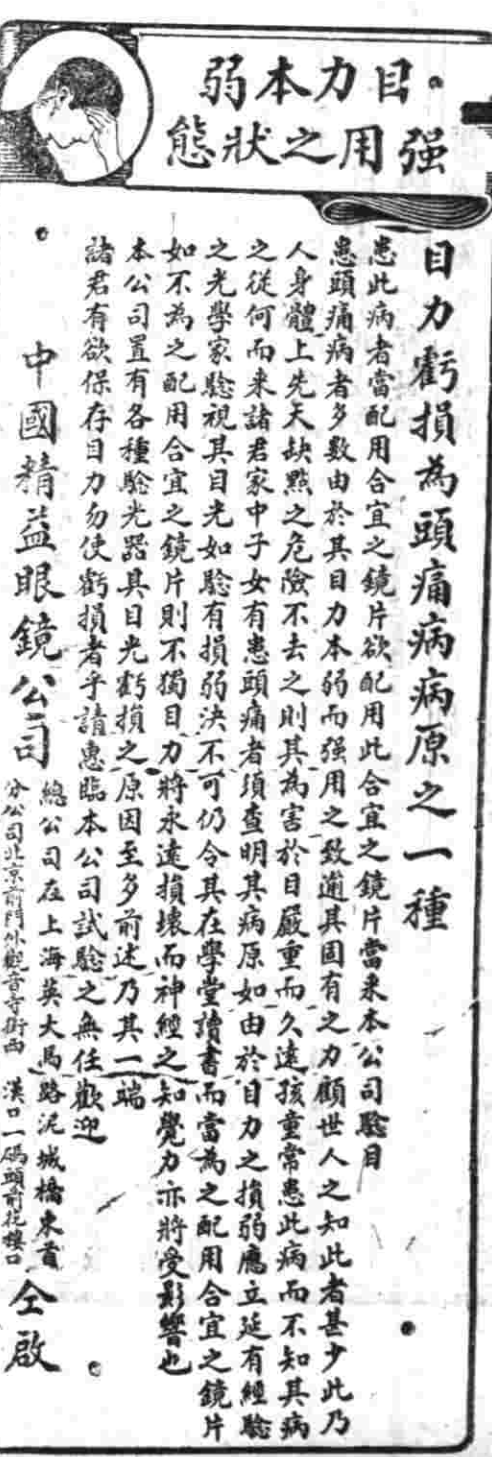 目力本弱
强用之狀態
目力虧損為頭痛病病原之一種
患此病者當配用合宜之鏡片欲配用此合宜之鏡片當來本公司驗目
患頭痛病者多數由於其目力本弱而强用之致逾其固有之力顧世人之知此者甚少此乃
人身體上先天缺點之危險不去之則其為害於目嚴重而久遠孩童常患此病而不知其病
之從何而來諸君家中子女有患頭痛者須查明其病原如由於目力之損弱應立延有經驗
之光學家驗視其目光如驗有損弱決不可仍令其在學堂讀書而當為之配用合宜之鏡片
如不為之配用合宜之鏡片則不獨目力將永遠損壞而神經之知覺力亦將受影響也
本公司置有各種驗光器具目光虧損之原因至多前述乃其一端
諸君有欲保存目力勿使虧損者乎請惠臨本公司試驗之無任歡迎
中國精益眼鏡公司
總公司在上海英大馬路泥城橋東首
分公司北京前門外觀音寺街西 漢口一碼頭前花樓口
仝啟